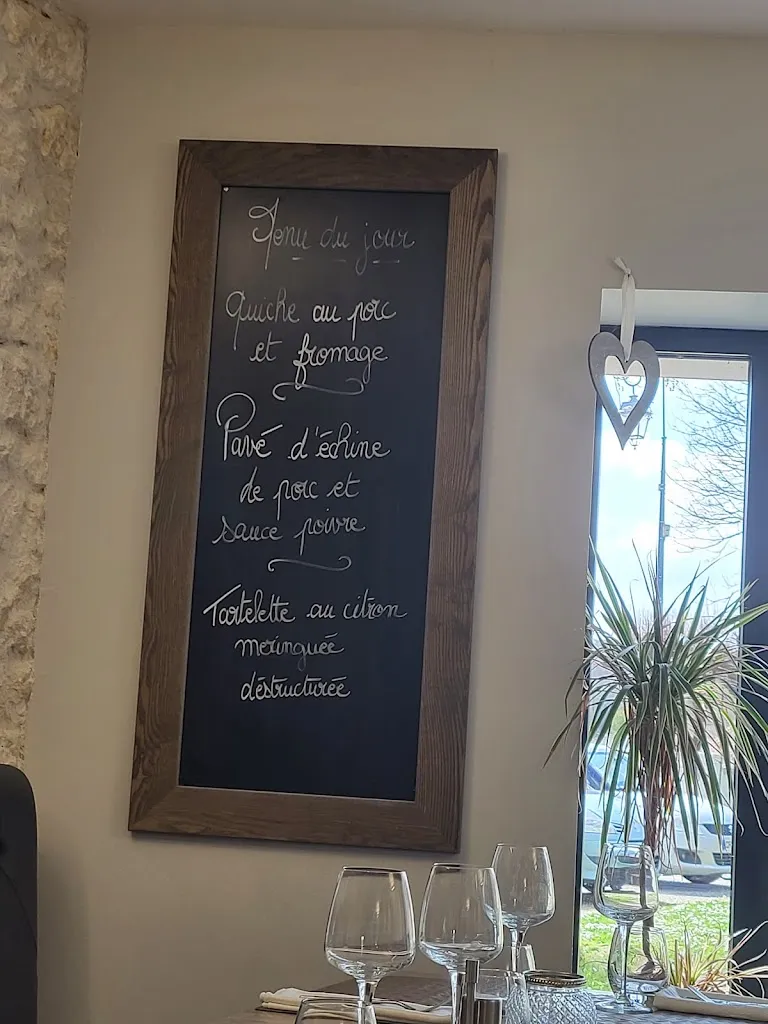 Menu du jour
Quiche au porc
et fromage
Pavé d'échine
de porc et
sauce poivre
Tartelette au citron
meringuée
déstructurée